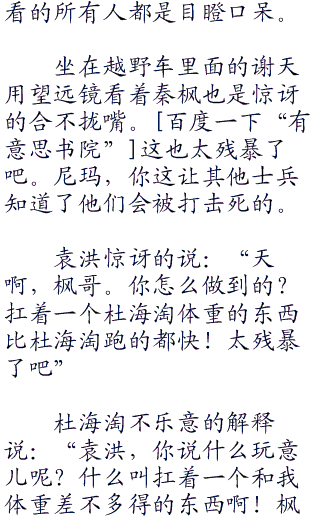 看的所有人都是目瞪口呆。
坐在越野车里面的谢天
用望远镜看着秦枫也是惊讶
的合不拢嘴。[百度一下“有
意思书院”]这也太残暴了
吧。尼玛，你这让其他士兵
知道了他们会被打击死的。
袁洪惊讶的说：“天
啊，枫哥。你怎么做到的？
扛着一个杜海淘体重的东西
比杜海淘跑的都快！太残暴
了吧”
杜海淘不乐意的解释
说：“袁洪，你说什么玩意
儿呢？什么叫扛着一个和我
体重差不多得的东西啊！枫